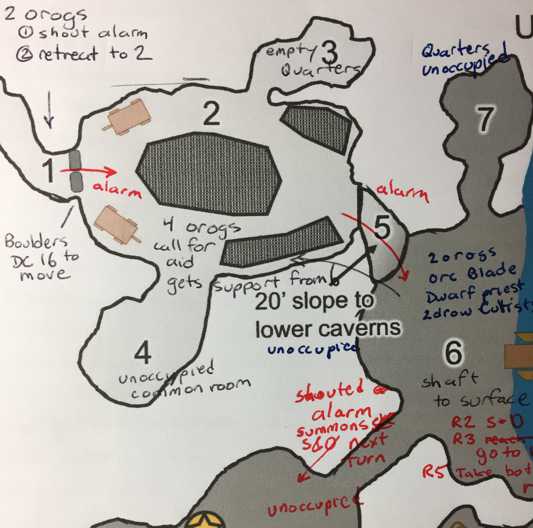 2 orogs
① shout alarm
② retreat to 2
empty 3
Quarters
Quarters
unoccupied
U
2
7
1
alarm
alarm
5
Boulders
DC 16 to
move
4 orogs
call for
aid
gets support from
20' slope to
lower caverns
unoccupied
2 orogs
orc Blade
Dwarf priest
2 drow Cultists
6
shaft
to surface
4
unoccupied
common room
shouted
alarm
summons
next
turn
unoccupied
R2
R3
go to
R5 Take